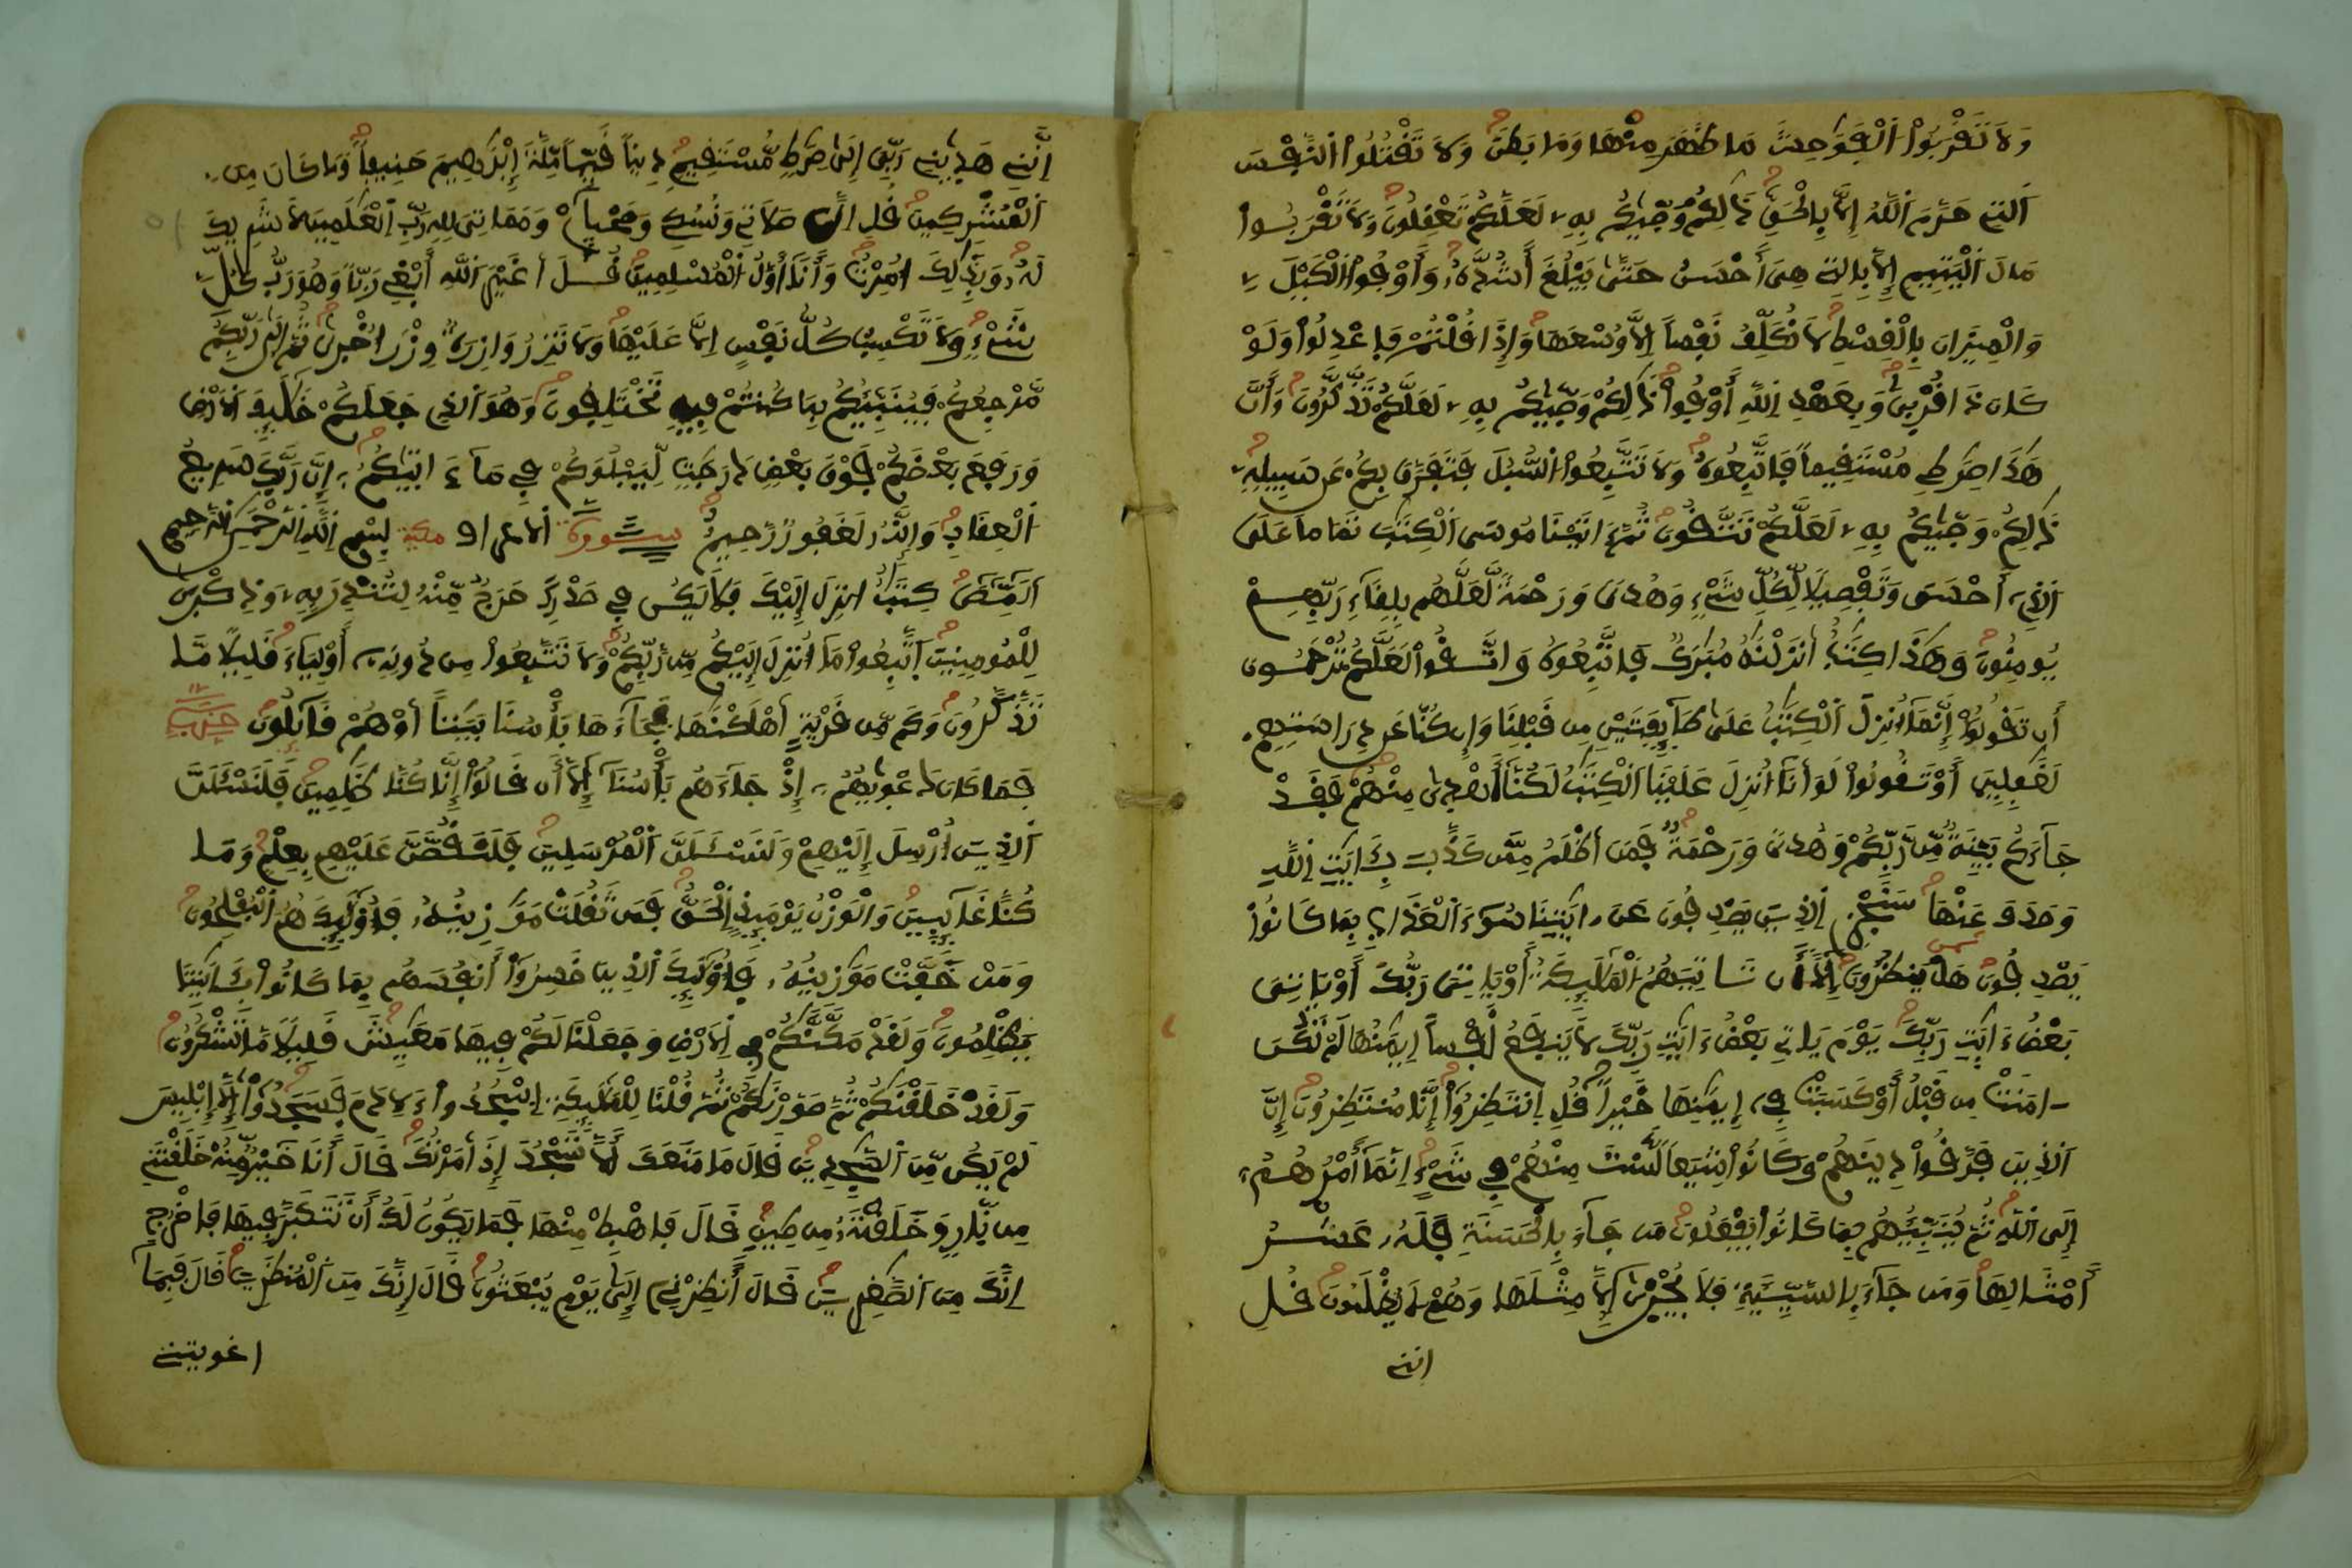 وَلَا تَقْرَبُوا۟ اُ۬لْفَوَٰحِشَ مَا ظَهَرَ مِنْهَا وَمَا بَطَنَ وَلَا تَقْتُلُوا۟ اُ۬لنَّفْسَ
اَ۬لتِے حَرَّمَ اَ۬للَّهُ إِلَّا بِالْحَقِّ ذَٰلِكُمْ وَصّ۪يٰكُم بِهِۦ لَعَلَّكُمْ تَعْقِلُونَ وَلَا تَقْرَبُوا۟
مَالَ اَ۬لْيَتِيمِ إِلَّا بِالتِے هِىَ أَحْسَنُ حَتَّىٰ يَبْلُغَ أَشُدَّهُۥ وَأَوْفُوا۟ اُ۬لْكَيْلَ
وَالْمِيزَانَ بِالْقِسْطِ لَا نُكَلِّفُ نَفْساً اِلَّا وُسْعَهَا وَإِذَا قُلْتُمْ فَاعْدِلُوا۟ وَلَوْ
كَانَ ذَا قُرْبىٰ وَبِعَهْدِ اِ۬للَّهِ أَوْفُوا۟ ذَٰلِكُمْ وَصّ۪يٰكُم بِهِۦ لَعَلَّكُمْ تَذَّكَّرُونَ وَأَنَّ
هَٰذَا صِرَٰطِے مُسْتَقِيماً فَاتَّبِعُوهُ وَلَا تَتَّبِعُوا۟ اُ۬لسُّبُلَ فَتَفَرَّقَ بِكُمْ عَن سَبِيلِهِۦ
ذَٰلِكُمْ وَصّ۪يٰكُم بِهِۦ لَعَلَّكُمْ تَتَّقُونَ ثُمَّ ءَاتَيْنَا مُوسَى اَ۬لْكِتَٰبَ تَمَاماً عَلَى
اَ۬لذِےٓ أَحْسَنَ وَتَفْصِيلًا لِّكُلِّ شَےْءٍ وَهُدىً وَرَحْمَةً لَّعَلَّهُم بِلِقَآءِ رَبِّهِمْ
يُومِنُونَ وَهَٰذَا كِتَٰبٌ أَنزَلْنَٰهُ مُبَٰرَكٌ فَاتَّبِعُوهُ وَاتَّقُوا۟ لَعَلَّكُمْ تُرْحَمُونَ
أَن تَقُولُوٓا۟ إِنَّمَآ أُنزِلَ اَ۬لْكِتَٰبُ عَلَىٰ طَآئِفَتَيْنِ مِن قَبْلِنَا وَإِن كُنَّا عَن دِرَاسَتِهِمْ
لَغَٰفِلِينَ أَوْ تَقُولُوا۟ لَوَ أَنَّآ أُنزِلَ عَلَيْنَا اَ۬لْكِتَٰبُ لَكُنَّآ أَهْدىٰ مِنْهُمْ فَقَدْ
جَآءَكُم بَيِّنَةٌ مِّن رَّبِّكُمْ وَهُدىً وَرَحْمَةٌ فَمَنَ أَظْلَمُ مِمَّن كَذَّبَ بِـَٔايَٰتِ اِ۬للَّهِ
وَصَدَفَ عَنْهَا سَنَجْزِے اِ۬لذِينَ يَصْدِفُونَ عَنَ ـايَٰتِنَا سُوٓءَ اَ۬لْعَذَابِ بِمَا كَانُوا۟
يَصْدِفُونَ هَلْ يَنظُرُونَ إِلَّآ أَن تَاتِيَهُمُ اُ۬لْمَلَٰٓئِكَةُ أَوْ يَاتِىَ رَبُّكَ أَوْ يَاتِىَ
بَعْضُ ءَايَٰتِ رَبِّكَ يَوْمَ يَاتِے بَعْضُ ءَايَٰتِ رَبِّكَ لَا يَنفَعُ نَفْساً اِيمَٰنُهَا لَمْ تَكُنَ
ـامَنَتْ مِن قَبْلُ أَوْ كَسَبَتْ فِےٓ إِيمَٰنِهَا خَيْراً قُلِ اِ۪نتَظِرُوٓا۟ إِنَّا مُنتَظِرُونَ إِنَّ
اَ۬لذِينَ فَرَّقُوا۟ دِينَهُمْ وَكَانُوا۟ شِيَعاً لَّسْتَ مِنْهُمْ فِے شَےْءٍ اِنَّمَآ أَمْرُهُمُۥٓ
إِلَى اَ۬للَّهِ ثُمَّ يُنَبِّئُهُم بِمَا كَانُوا۟ يَفْعَلُونَ مَن جَآءَ بِالْحَسَنَةِ فَلَهُۥ عَشْرُ
أَمْثَالِهَا وَمَن جَآءَ بِالسَّيِّئَةِ فَلَا يُجْزىٰٓ إِلَّا مِثْلَهَا وَهُمْ لَا يُظْلَمُونَ قُلِ
اننے
اِنَّنِے هَد۪يٰنِے رَبِّىَ إِلَىٰ صِرَٰطٍ مُّسْتَقِيمٍ دِيناً قَيِّماً مِّلَّةَ إِبْرَٰهِيمَ حَنِيفاً وَمَا كَانَ مِنَ
اَ۬لْمُشْرِكِينَ قُلِ اِنَّ صَلَاتِے وَنُسُكِے وَمَحْي۪آےْ وَمَمَاتِىَ لِلهِ رَبِّ اِ۬لْعَٰلَمِينَ لَا شَرِيكَ
لَهُۥ وَبِذَٰلِكَ أُمِرْتُ وَأَنَآ أَوَّلُ اُ۬لْمُسْلِمِينَ قُلَ أَغَيْرَ اَ۬للَّهِ أَبْغِے رَبّاً وَهُوَ رَبُّ كُلِّ
شَےْءٍ وَلَا تَكْسِبُ كُلُّ نَفْسٍ اِلَّا عَلَيْهَا وَلَا تَزِرُ وَازِرَةٌ وِزْرَ أُخْرىٰ ثُمَّ إِلَىٰ رَبِّكُم
مَّرْجِعُكُمْ فَيُنَبِّئُكُم بِمَا كُنتُمْ فِيهِ تَخْتَلِفُونَ وَهُوَ اَ۬لذِے جَعَلَكُمْ خَلَٰٓئِفَ اَ۬لَارْضِ
وَرَفَعَ بَعْضَكُمْ فَوْقَ بَعْضٍ دَرَجَٰتٍ لِّيَبْلُوَكُمْ فِے مَآ ءَات۪يٰكُمُۥٓ إِنَّ رَبَّكَ سَرِيعُ
اُ۬لْعِقَابِ وَإِنَّهُۥ لَغَفُورٌ رَّحِيمٌ سورة الاعراف مكية بِسْمِ اِ۬للَّهِ اِ۬لرَّحْمَٰنِ اِ۬لرَّحِيمِ
اَلٓمِّٓصٓ كِتَٰبٌ انزِلَ إِلَيْكَ فَلَا يَكُن فِے صَدْرِكَ حَرَجٌ مِّنْهُ لِتُنذِرَ بِهِۦ وَذِكْرىٰ
لِلْمُومِنِينَ اَ۪تَّبِعُوا۟ مَآ أُنزِلَ إِلَيْكُم مِّن رَّبِّكُمْ وَلَا تَتَّبِعُوا۟ مِن دُونِهِۦٓ أَوْلِيَآءَ قَلِيلًا مَّا
تَذَّكَّرُونَ وَكَم مِّن قَرْيَةٍ أَهْلَكْنَٰهَا فَجَآءَهَا بَأْسُنَا بَيَٰتاً أَوْ هُمْ قَآئِلُونَ حزب
فَمَا كَانَ دَعْو۪يٰهُمُۥٓ إِذْ جَآءَهُم بَأْسُنَآ إِلَّآ أَن قَالُوٓا۟ إِنَّا كُنَّا ظَٰلِمِينَ فَلَنَسْـَٔلَنَّ
اَ۬لذِينَ أُرْسِلَ إِلَيْهِمْ وَلَنَسْـَٔلَنَّ اَ۬لْمُرْسَلِينَ فَلَنَقُصَّنَّ عَلَيْهِم بِعِلْمٍ وَمَا
كُنَّا غَآئِبِينَ وَالْوَزْنُ يَوْمَئِذٍ اِ۬لْحَقُّ فَمَن ثَقُلَتْ مَوَٰزِينُهُۥ فَأُو۟لَٰٓئِكَ هُمُ اُ۬لْمُفْلِحُونَ
وَمَنْ خَفَّتْ مَوَٰزِينُهُۥ فَأُو۟لَٰٓئِكَ اَ۬لذِينَ خَسِرُوٓا۟ أَنفُسَهُم بِمَا كَانُوا۟ بِـَٔايَٰتِنَا
يَظْلِمُونَ وَلَقَدْ مَكَّنَّٰكُمْ فِے اِ۬لَارْضِ وَجَعَلْنَا لَكُمْ فِيهَا مَعَٰيِشَ قَلِيلًا مَّا تَشْكُرُونَ
وَلَقَدْ خَلَقْنَٰكُمْ ثُمَّ صَوَّرْنَٰكُمْ ثُمَّ قُلْنَا لِلْمَلَٰٓئِكَةِ اِ۟سْجُدُوا۟ ءِلَادَمَ فَسَجَدُوٓا۟ إِلَّآ إِبْلِيسَ
لَمْ يَكُن مِّنَ اَ۬لسَّٰجِدِينَ قَالَ مَا مَنَعَكَ أَلَّا تَسْجُدَ إِذَ أَمَرْتُكَ قَالَ أَنَا خَيْرٌ مِّنْهُ خَلَقْتَنِے
مِن نّ۪ارٍ وَخَلَقْتَهُۥ مِن طِينٍ قَالَ فَاهْبِطْ مِنْهَا فَمَا يَكُونُ لَكَ أَن تَتَكَبَّرَ فِيهَا فَاخْرُجِ
اِنَّكَ مِنَ اَ۬لصَّٰغِرِينَ قَالَ أَنظِرْنِےٓ إِلَىٰ يَوْمِ يُبْعَثُونَ قَالَ إِنَّكَ مِنَ اَ۬لْمُنظَرِينَ قَالَ فَبِمَآ
اغويتنے